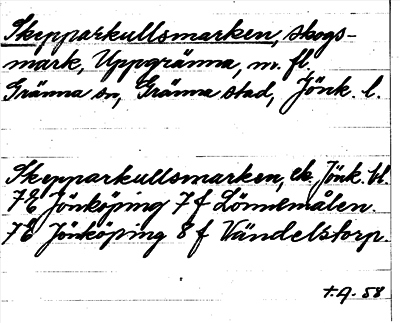 Skepparkullsmarken, skogs-
mark, Uppgränna, m. fl.
Gränna sn, Gränna stad, Jönk. l.
Skepparkullsmarken, ek. Jönk. bl.
7E Jönköping 7f Lönnemålen.
7E Jönköping 8f Vändelstorp.
t.A. 58